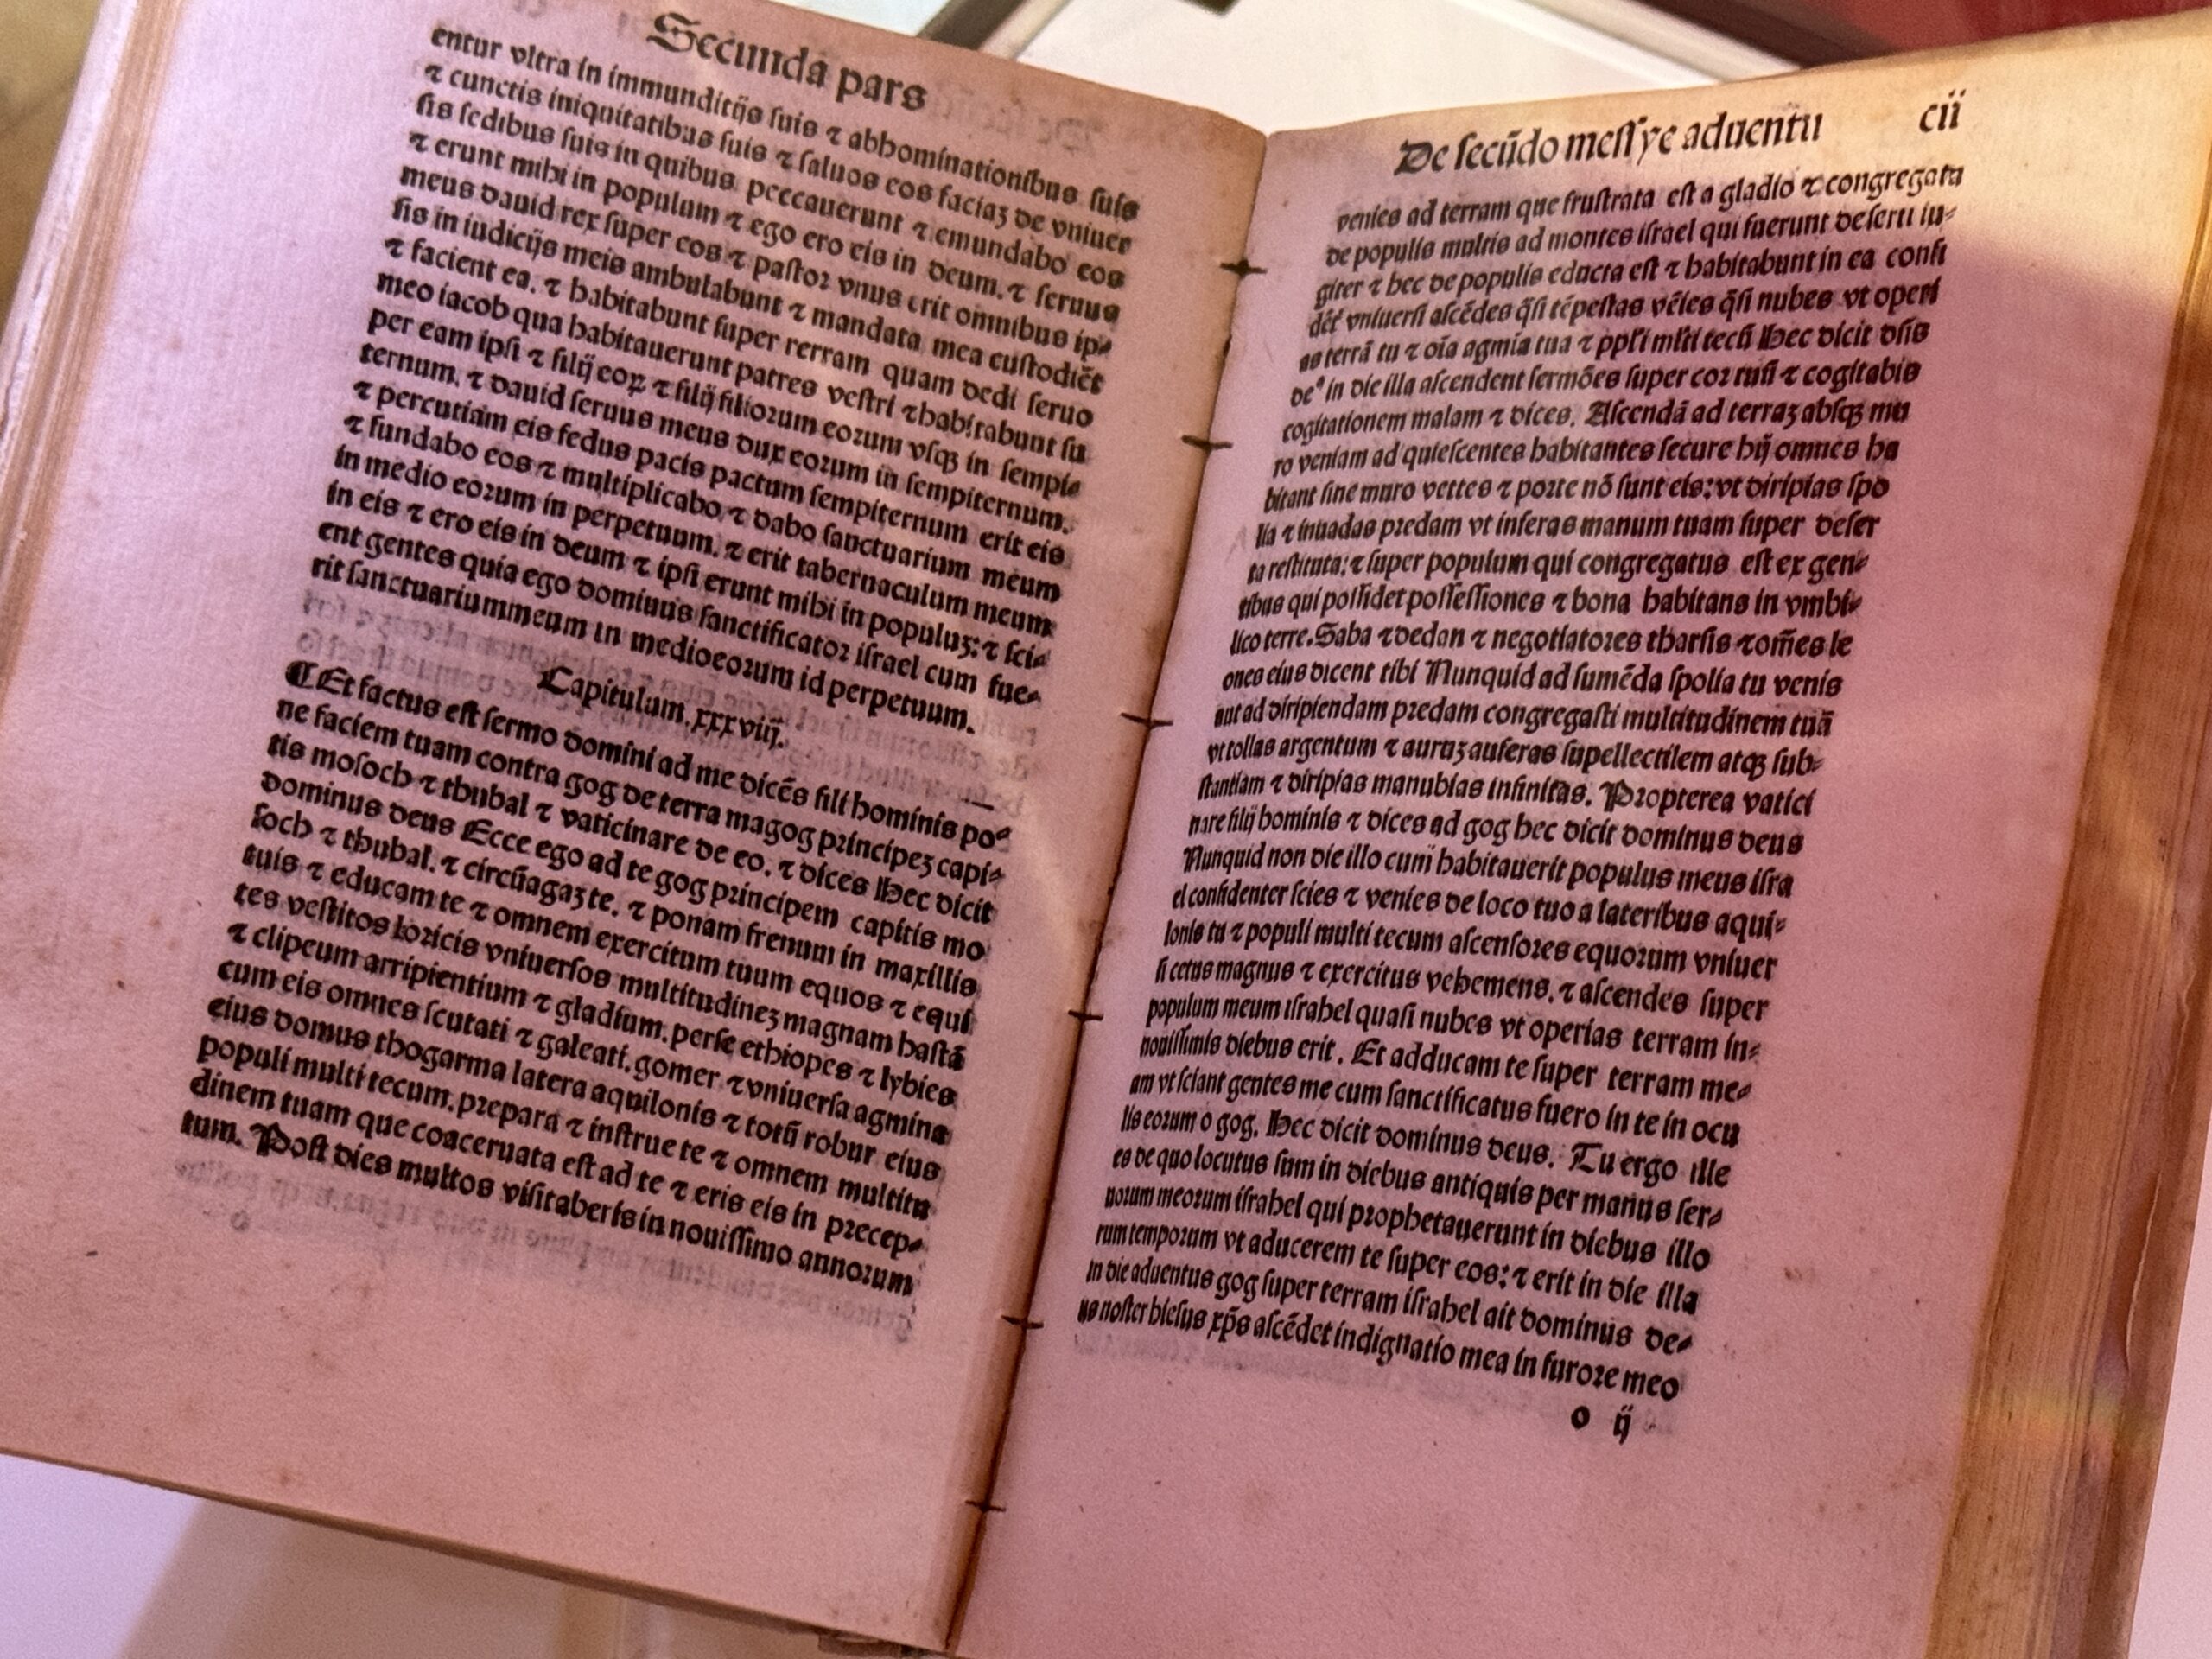 Secunda pars
entur vltra in immunditijs suis ⁊ abhominationibus suis
⁊ cunctis iniquitatibus suis ⁊ saluos eos faciaʒ de vniuer
sis sedibus suis in quibus peccauerunt ⁊ emundabo eos
⁊ erunt mihi in populum ⁊ ego ero eis in deum. ⁊ seruus
meus dauid rex super eos ⁊ pastor vnus erit omnibus ip⸗
sis in iudicijs meis ambulabunt ⁊ mandata mea custodiēt
⁊ facient ea. ⁊ habitabunt super rerram quam dedi seruo
meo iacob qua habitauerunt patres vestri ⁊ habitabunt su
per eam ipsi ⁊ filij eoꝝ ⁊ filij filiorum eorum vsqꝫ in sempi⸗
ternum. ⁊ dauid seruus meus dux eorum in sempiternum.
⁊ percutiam eis fedus pacis pactum sempiternum erit eis
⁊ fundabo eos ⁊ multiplicabo ⁊ dabo sanctuarium meum
in medio eorum in perpetuum. ⁊ erit tabernaculum meum
in eis ⁊ ero eis in deum ⁊ ipsi erunt mihi in populuʒ: ⁊ sci⸗
ent gentes quia ego dominus sanctificator israel cum fue⸗
rit sanctuariummeum in medioeorum id perpetuum.
Capitulum. xxxviij.
¶Et factus est sermo domini ad me dicēs fili hominis po⸗
ne faciem tuam contra gog de terra magog principeʒ capi⸗
tis mosoch ⁊ thubal ⁊ vaticinare de eo. ⁊ dices Hec dicit
dominus deus Ecce ego ad te gog principem capitis mo
soch ⁊ thubal. ⁊ circūagaʒ te. ⁊ ponam frenum in maxillis
tuis ⁊ educam te ⁊ omnem exercitum tuum equos ⁊ equi
tes vestitos loricis vniuersos multitudineʒ magnam hastā
⁊ clipeum arripientium ⁊ gladium. perse ethiopes ⁊ lybies
cum eis omnes scutati ⁊ galeati. gomer ⁊ vniuersa agmina
eius domus thogarma latera aquilonis ⁊ totū robur eius
populi multi tecum. prepara ⁊ instrue te ⁊ omnem multitu
dinem tuam que coaceruata est ad te ⁊ eris eis in precep⸗
tum. Post dies multos visitaberis in nouissimo annorum
De secūdo messye aduentu cii
venies ad terram que frustrata est a gladio ⁊ congregata
de populis multis ad montes israel qui fuerunt deserti iu⸗
giter ⁊ hec de populis educta est ⁊ habitabunt in ea confi
dēt vniuersi ascēdes q̄si tēpestas vēies q̄si nubes vt operi
as terrā tu ⁊ oīa agmīa tua ⁊ ppl'i ml'ti tecū Hec dicit dn̄s
de⁹ in die illa ascendent sermōes super cor tuū ⁊ cogitabis
cogitationem malam ⁊ dices. Ascendā ad terraʒ absqꝫ mu
ro veniam ad quiescentes habitantes secure hij omnes ha
bitant sine muro vettes ⁊ porte nō sunt eis: vt diripias spo
lia ⁊ inuadas predam vt inferas manum tuam super deser
ta restituta: ⁊ super populum qui congregatus est ex gen⸗
tibus qui possidet possessiones ⁊ bona habitans in vmbi⸗
lico terre. Saba ⁊ dedan ⁊ negotiatores tharsis ⁊ om̄es le
ones eius dicent tibi Nunquid ad sumēda spolia tu venis
aut ad diripiendam predam congregasti multitudinem tuā
vt tollas argentum ⁊ auruʒ auferas supellectilem atqꝫ sub⸗
stantiam ⁊ diripias manubias infinitas. Propterea vatici
nare filij hominis ⁊ dices ad gog hec dicit dominus deus
Nunquid non die illo cum habitauerit populus meus isra
el confidenter scies ⁊ venies de loco tuo a lateribus aqui⸗
lonis tu ⁊ populi multi tecum ascensores equorum vniuer
si cetus magnus ⁊ exercitus vehemens. ⁊ ascendes super
populum meum israhel quasi nubes vt operias terram in⸗
nouissimis diebus erit. Et adducam te super terram me⸗
am vt sciant gentes me cum sanctificatus fuero in te in ocu
lis eorum o gog. Hec dicit dominus deus. Tu ergo ille
es de quo locutus sum in diebus antiquis per manus ser⸗
uorum meorum israhel qui prophetauerunt in diebus illo
rum temporum vt aducerem te super eos: ⁊ erit in die illa
in die aduentus gog super terram israhel ait dominus de⸗
us noster hiesus xp̄s ascēdet indignatio mea in furore meo
o ij